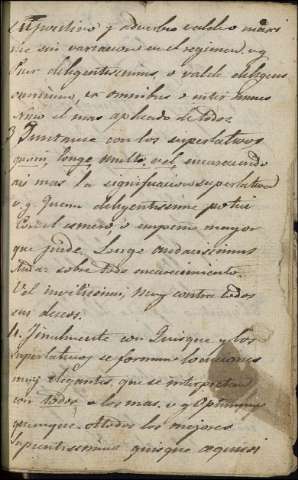 positivo y adverbio valde o maxi
me sin variacion en el regimen. v.g.
Puer diligentissimus, o valde diligens
omnium, ex omnibus o inter omnes
Niño el mas aplicado de todos.
3 Juntanse con los superlativos
quam, longe, multo, vel, encareciendo
mas la significacion superlativa
v.g. Quam diligentissime potui
Con el esmero, o empeño mayor
que pude. Longe audacissimus
Audaz sobre todo encarecimiento.
Vel invitissimus, Muy contra todos
sus deseos.
4. Finalmente con Quisque y los
superlativos se forman locuciones
muy elegantes, que se interpretan
con todos, o los mas. v.g. Optimus
quisque. Todos los mejores
sapientissimus quisque aquiesi